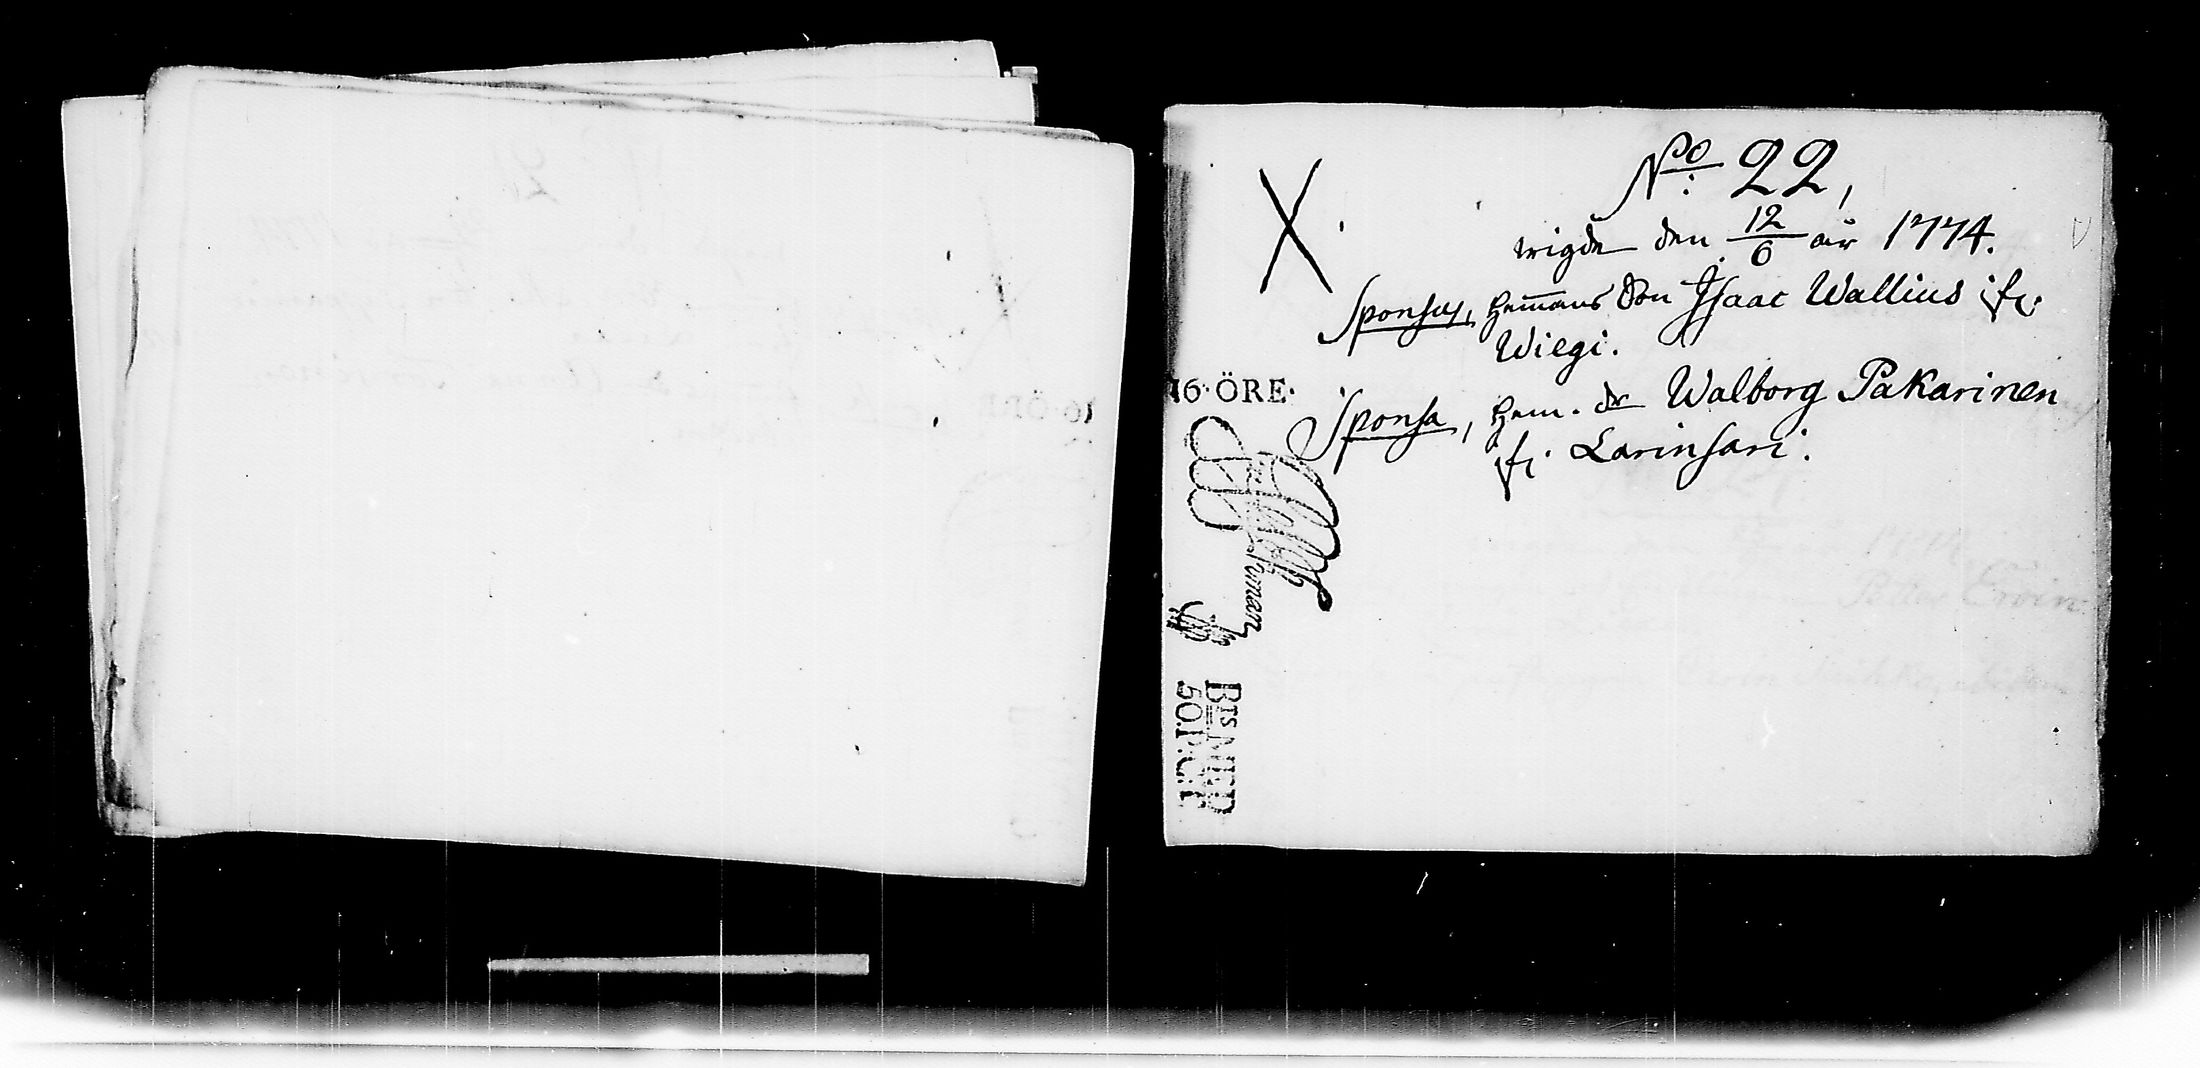 No: 22,
wigde den 12/6 år 1774.
Sponsus, Hemans Son Isaac Wallius ifr.
Wiegi.
16·ÖRE·
Sponsa, Hem. dr Walborg Pakarinen
ifr. Larinsari.
BTS NED
50.P:CT